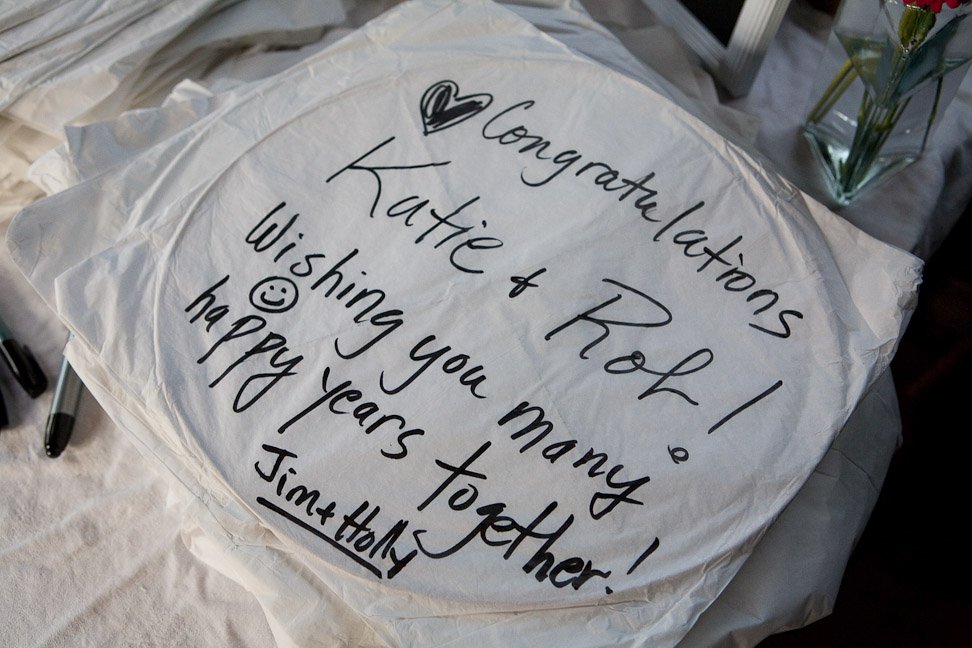 Congratulations
Katie + Rob!
Wishing you many
happy years together!
Jim + Holly